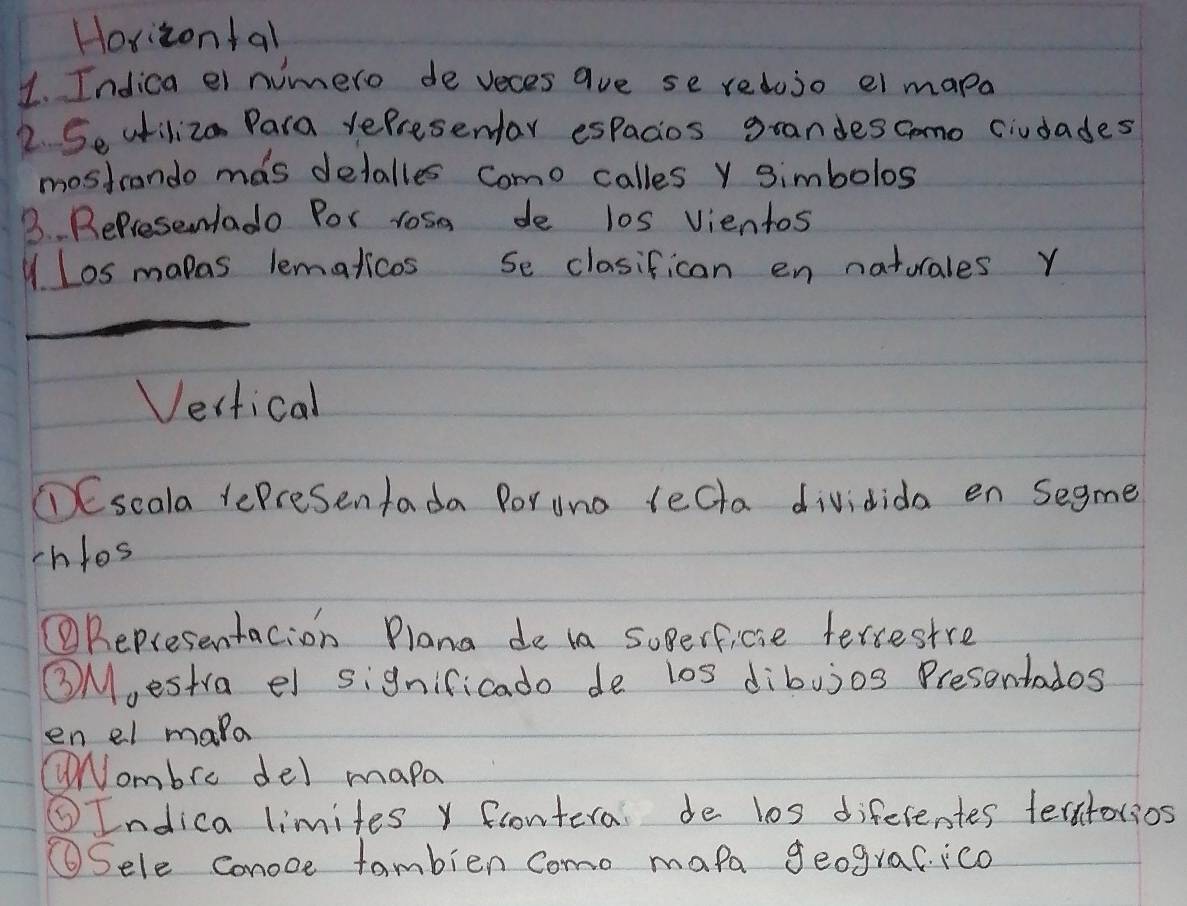 Horizontal
1. Indica el número de veces que se redujo el mapa
2. Se utiliza Para rePresentar esPacios grandes como ciudades
mostrando más detalles como calles y simbolos
3. RePresentado Por rosa de los vientos
4. Los mapas lematicos se clasifican en naturales y
Vertical
① Escala rePresentada Por una recta dividida en segme
ntos
② Representación Plana de la superficie terrestre
③ Muestra el significado de los dibujos Presentados
en el mapa
④ Nombre del mapa
⑤ Indica limites y frontera de los diferentes territorios
⑥ Sele conoce tambien como mapa geografico